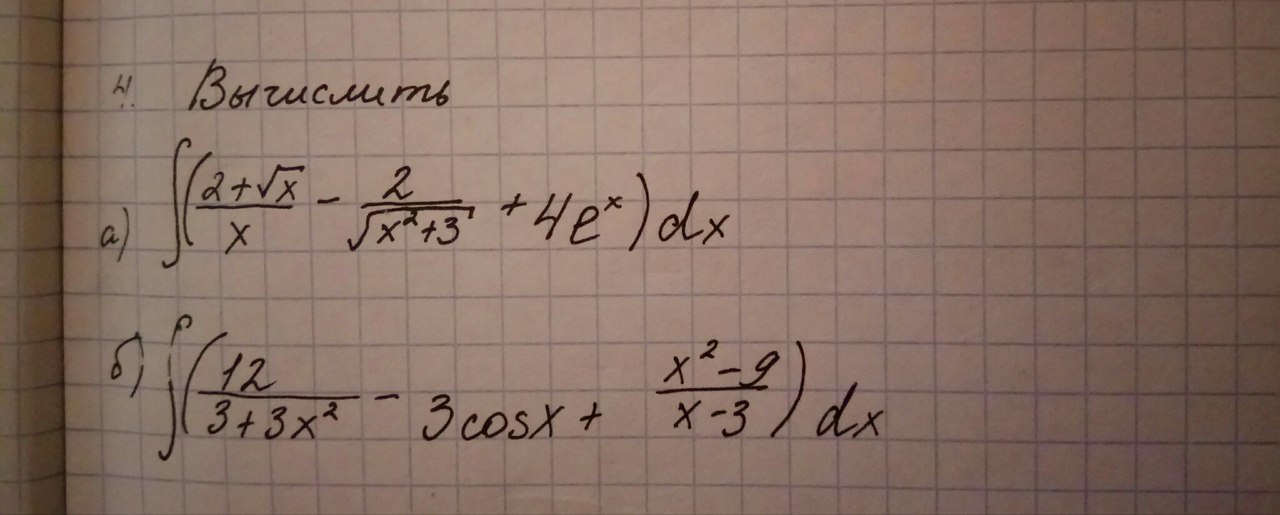 4. Вычислить
а) ∫((2+√x)/x - 2/√(x²+3) + 4eˣ)dx
б) ∫(12/(3+3x²) - 3cosx + (x²-9)/(x-3))dx